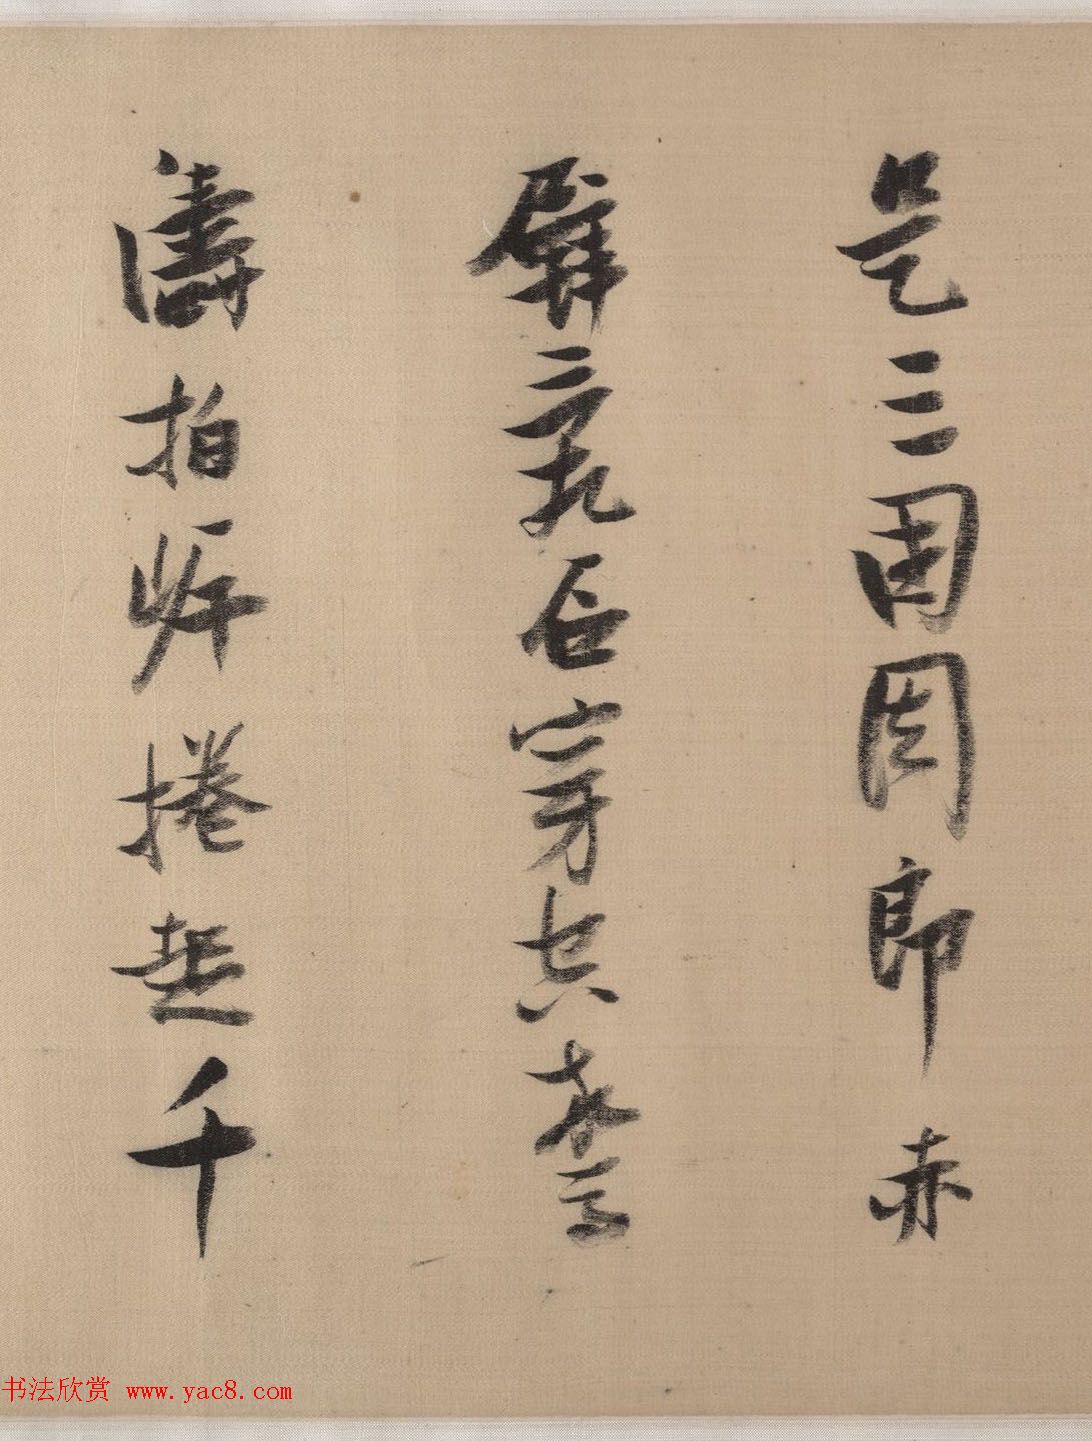 是三國周郎赤
壁亂石穿空驚
濤拍岸捲起千
书法欣赏 www.yac8.com